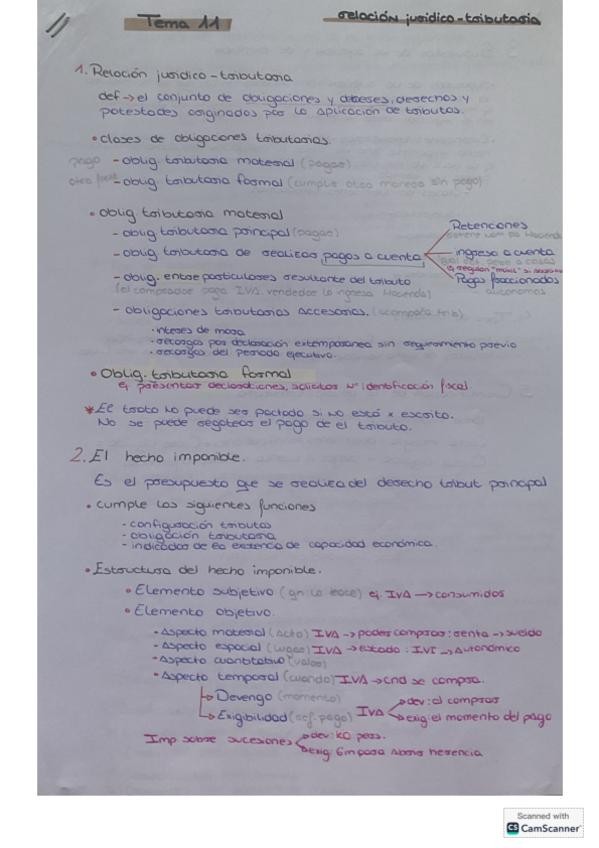 Tema 11
relación jurídico-tributaria
1. Relación jurídico-tributaria
def → el conjunto de obligaciones y deberes, derechos y
potestades originados por la aplicación de tributos.
• clases de obligaciones tributarias.
pago - oblig. tributaria material (pagar)
otra - oblig. tributaria formal (cumplir otra manera sin pago)
• oblig tributaria material
- oblig tributaria principal (pagar)
- oblig tributaria de realizar pagos a cuenta
Retenciones
ingreso a cuenta
Pagos fraccionados
autonomos
- oblig. entre particulares resultante del tributo
(el comprador paga IVA. vendedor lo ingresa Hacienda)
- obligaciones tributarias Accesorias. (acompaña trib)
• interes de mora
• recargos por declaración extemporanea sin requerimiento previo
• recargos del periodo ejecutivo.
• Oblig. tributaria formal
ej presentar declaraciones, solicitar Nº identificación fiscal
* El trato no puede ser pactado si no está x escrito.
No se puede regatear el pago de el tributo.
2. El hecho imponible.
Es el presupuesto que se realica del derecho tribut principal
• cumple las siguientes funciones
- configuración tributos
- obligación tributaria
- indicador de la existencia de capacidad económica.
• Estructura del hecho imponible.
• Elemento subjetivo (qn lo hace) ej. IVA → consumidor
• Elemento objetivo.
• Aspecto material (Acto) IVA → poder comprar: renta → sueldo
• Aspecto espacial (lugar) IVA → estado: IVI → Autonómico
• Aspecto cuantitativo (valor)
• Aspecto temporal (cuando) IVA → cnd se compra.
Devengo (momento)
Exigibilidad (ref. pago) IVA
dev: al comprar
exig: el momento del pago
Imp sobre sucesiones
dev: KO pers.
exig: 6m para Abono herencia
Scanned with
CS CamScanner